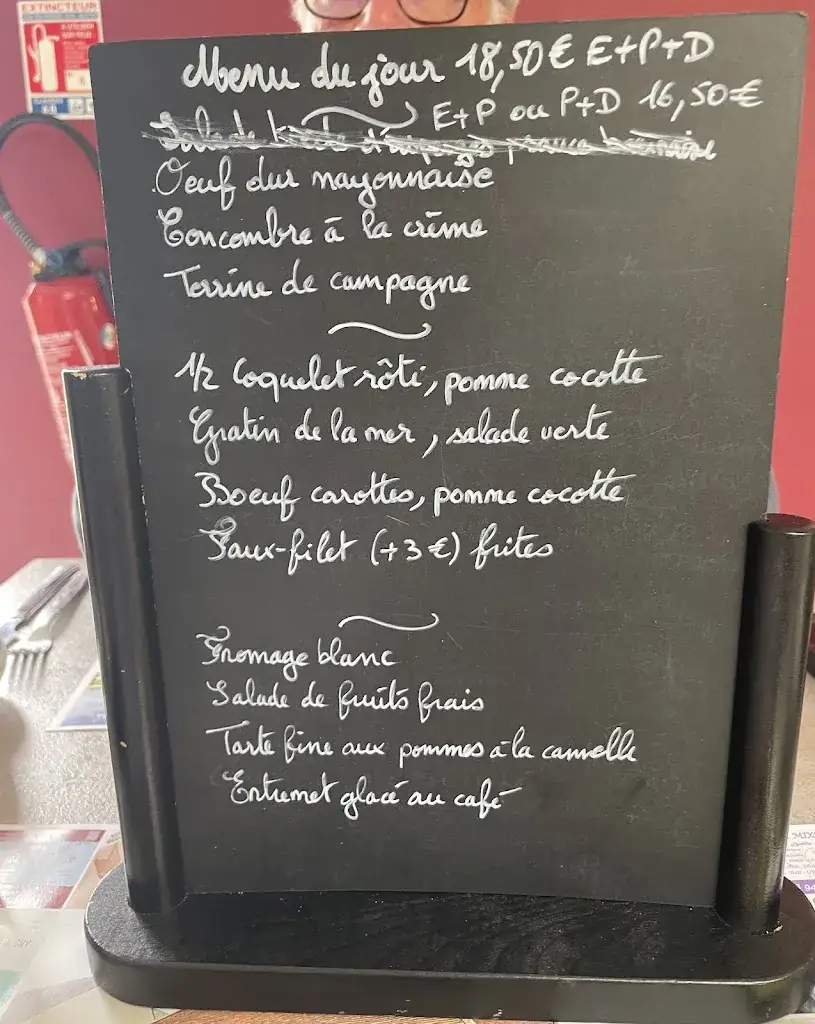 EXTINCTEUR
Menu du jour 18,50€ E+P+D
E+P ou P+D 16,50€
Oeuf dur mayonnaise
Concombre à la crème
Terrine de campagne
1/2 Coquelet rôti, pomme cocotte
Gratin de la mer, salade verte
Boeuf carottes, pomme cocotte
Faux-filet (+3€) frites
Fromage blanc
Salade de fruits frais
Tarte fine aux pommes à la cannelle
Entremet glacé au café